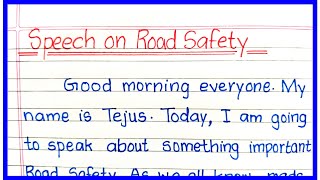 Speech on Road Safety
Good morning everyone. My
name is Tejus. Today, I am going
to speak about something important
Road Safety. As we all know, roads